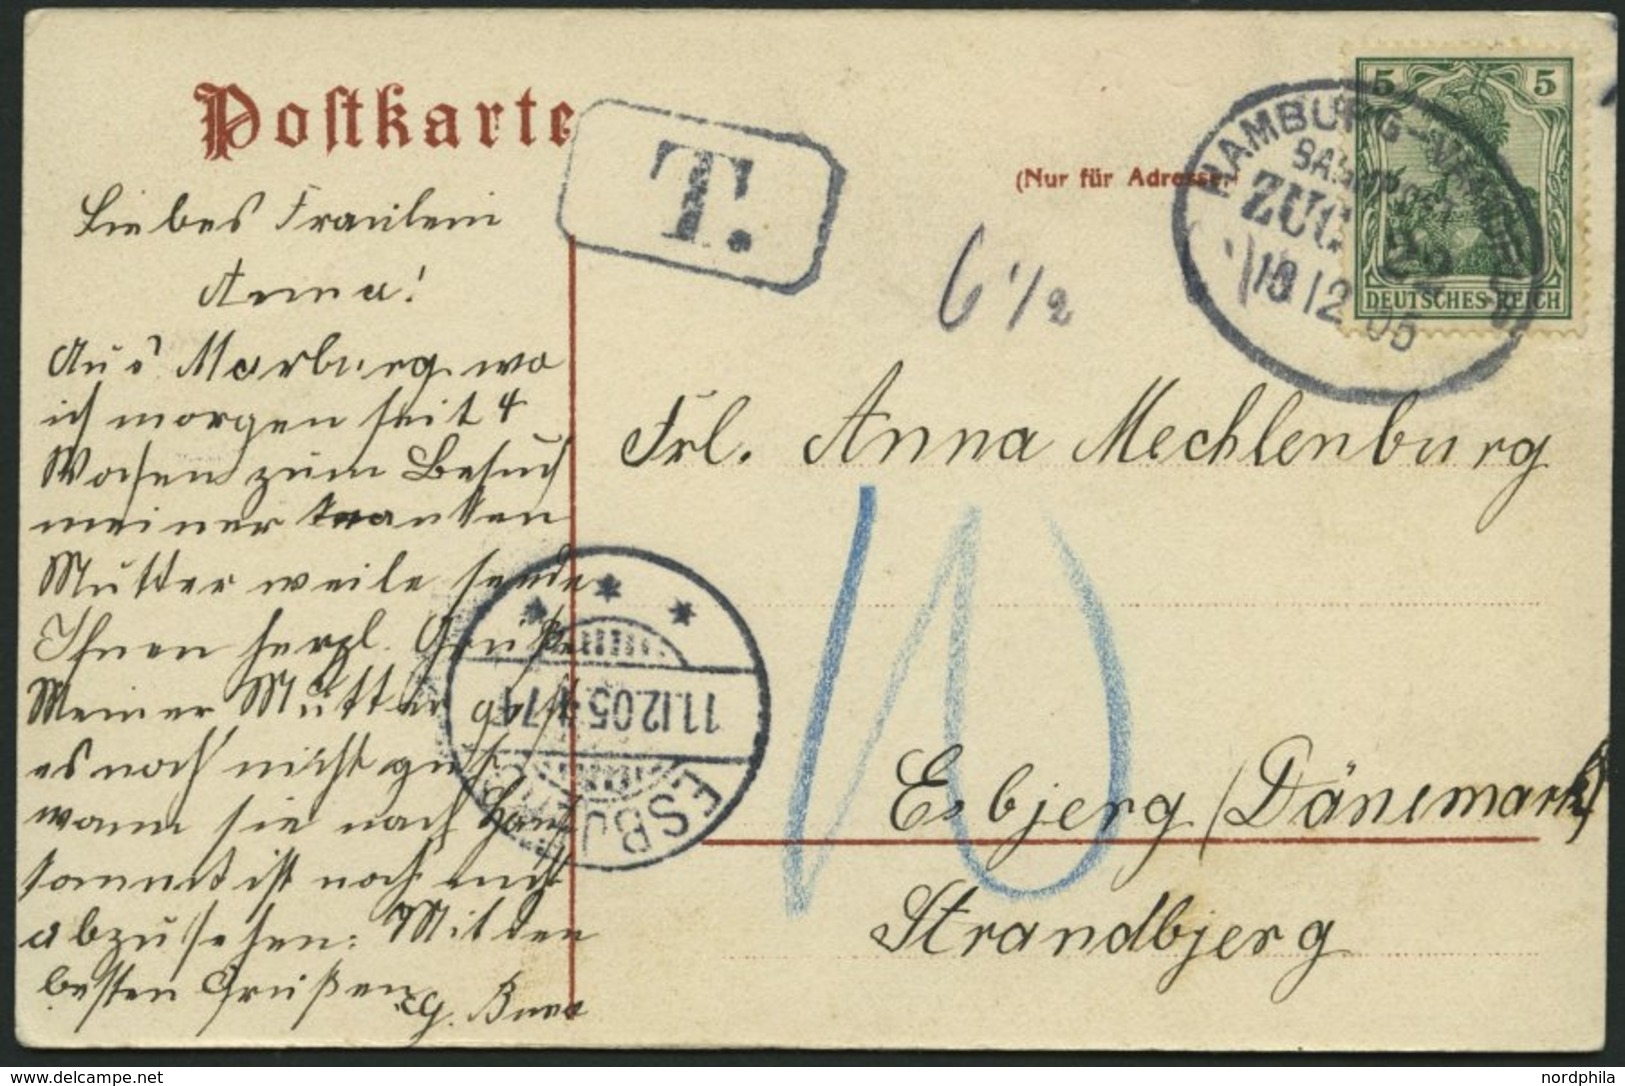 Postkarte
T.
(Nur für Adresse.)
5 5
DEUTSCHES REICH
HAMBURG-
BAHNPOST
ZUG 22
10 12 05
6 1/2
Liebes Fräulein
Anna!
Aus Marburg wo
ich morgen seit 4
Wochen zum Besuch
meiner kranken
Mutter weile sende
Ihnen herzl. Grüße.
Meiner Mutter geht
es noch nicht gut
wann sie nach Haus
kommt ist noch nicht
abzusehen. Mit den
besten Grüßen
Frl. Anna Mechlenburg
10
Esbjerg (Dänemark)
Strandbjerg
ESBJERG
11.12.05
delcampe.net
nordphila